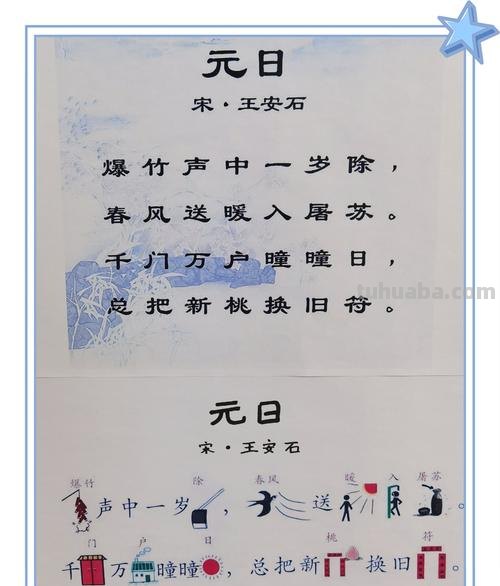 元日
宋·王安石
爆竹声中一岁除，
春风送暖入屠苏。
千门万户曈曈日，
总把新桃换旧符。
tuhuaba.com
元日
宋·王安石
爆竹 除 春风 暖 入 屠苏
声中一岁 ， 送 。
门 户 日 桃 符
千 万 曈曈 ，总把新 换旧 。